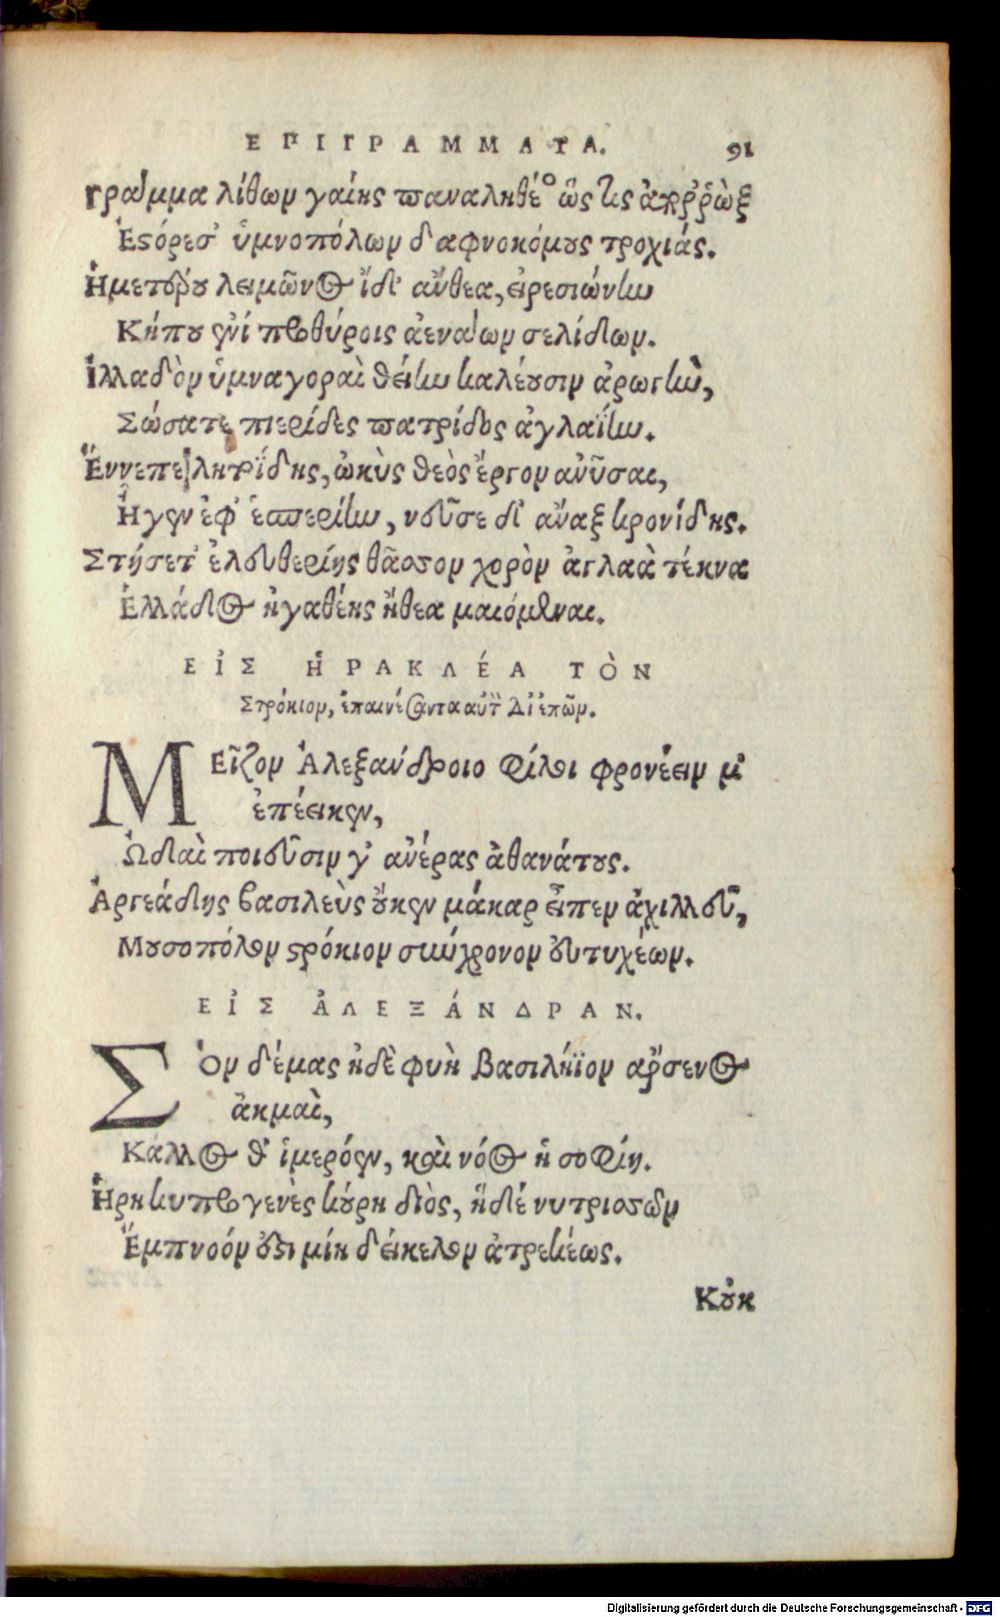 ΕΠΙΓΡΑΜΜΑΤΑ. 91
Γράμμα λίθων γαίης παναληθέος ὥς τις ἀπορρὼξ
Ἐστόρεσ' ὑμνοπόλων δαφνοκόμους τροχιάς.
Ἡμετέρου λειμῶνος ἴδ' ἄνθεα, εἰρεσιώνην
Κήπου ἐνί προθύροις ἀενάων σελίδων.
Ἰλλαδὸν ὑμναγοραὶ θείην καλέουσιν ἀρωγὴν,
Σώσατε πιερίδες πατρίδος ἀγλαΐην.
Ἔννεπε ληροΐδης, ὠκὺς θεὸς ἔργον ἀνῦσαι,
Ἦγεν ἐφ' ἑσπερίην, νεῦσε δ' ἄναξ κρονίδης.
Στήσετ' ἐλευθερίης θᾶσσον χορὸν ἀγλαὰ τέκνα
Ἑλλάδος ἠγαθέης ἤθεα μαιόμεναι.
ΕἸΣ ἩΡΑΚΛΈΑ ΤῸΝ
Στρόκιον, ἐπαινέσαντα αὐτὸν Δἰ ἐπῶν.
ΜΕῖζον Ἀλεξάνδροιο φίλοι φρονέειν μ'
ἐπέεικεν,
Ὠδαὶ ποιεῦσιν γ' ἀνέρας ἀθανάτους.
Ἀργεάδης βασιλεὺς οὔκεν μάκαρ εἶπεν ἀχιλλεῦ,
Μουσοπόλον στρόκιον σύγχρονον εὐτυχέων.
ΕἸΣ ἈΛΕΞΆΝΔΡΑΝ.
ΣὉν δέμας ἠδὲ φυὴ βασιλήϊον ἄρσενος
ἀκμαὶ,
Κάλλος θ' ἱμερόεν, καὶ νόος ἡ σοφίη.
Ἥρη κυπρογενὲς κούρη διὸς, ἥδέ νυ τρισσῶν
Ἔμπνοόν ἐστι μίη δείκελον ἀτρεκέως.
Κούκ
Digitalisierung gefördert durch die Deutsche Forschungsgemeinschaft - DFG